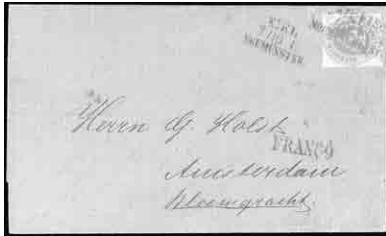 KIEL
NEUMÜNSTER
Herrn G. Holst
FRANCO
Amsterdam
Bloemgracht.